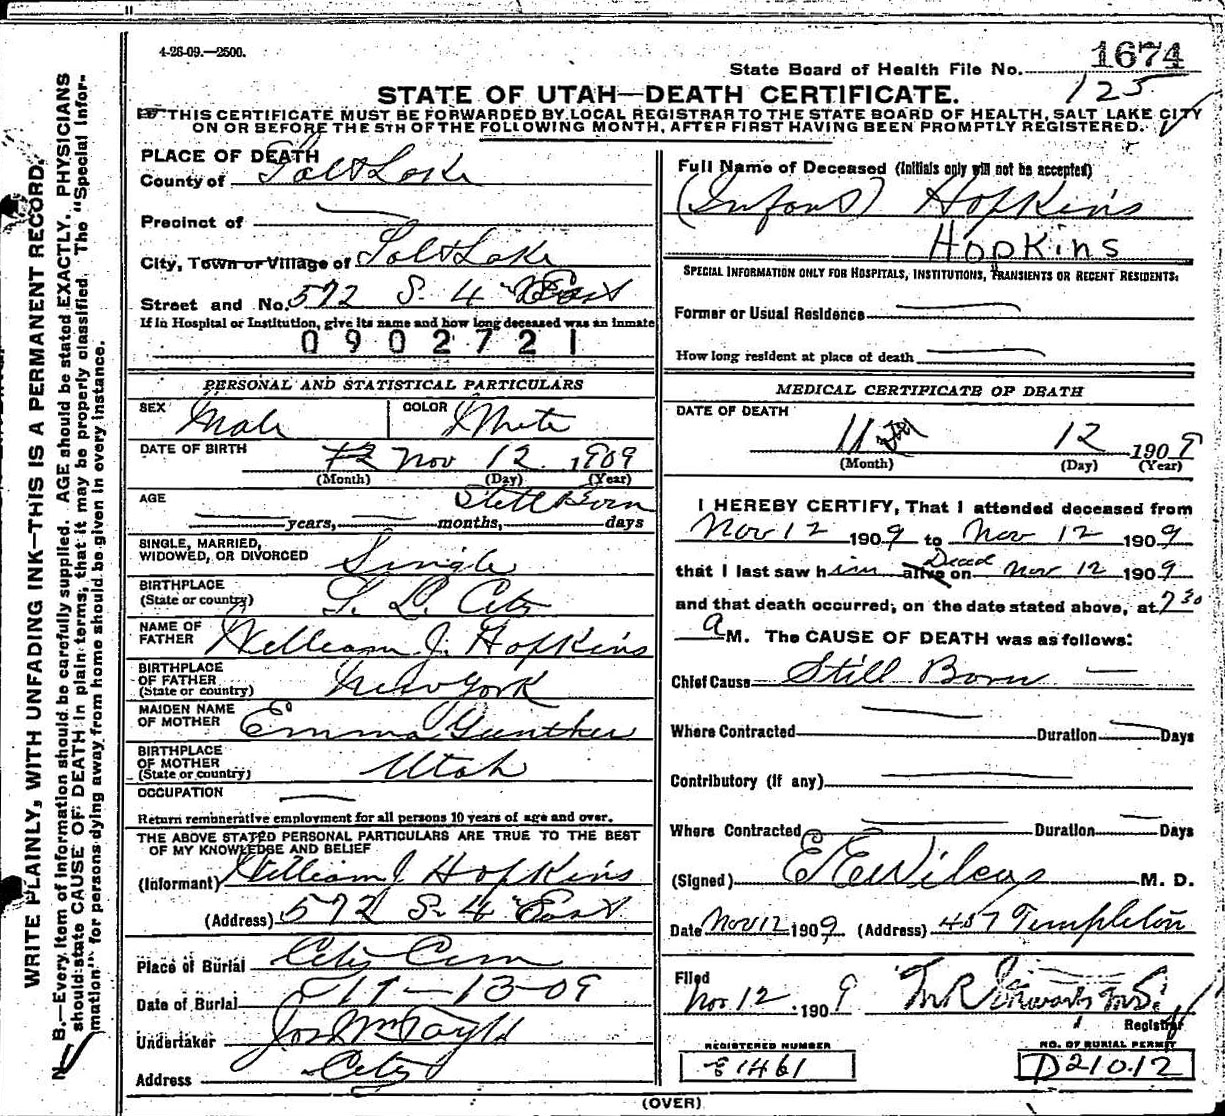 4-26-09.—2500.
1674
State Board of Health File No.
125
STATE OF UTAH—DEATH CERTIFICATE.
THIS CERTIFICATE MUST BE FORWARDED BY LOCAL REGISTRAR TO THE STATE BOARD OF HEALTH, SALT LAKE CITY
ON OR BEFORE THE 5TH OF THE FOLLOWING MONTH, AFTER FIRST HAVING BEEN PROMPTLY REGISTERED.
WRITE PLAINLY, WITH UNFADING INK—THIS IS A PERMANENT RECORD.
N. B.—Every item of information should be carefully supplied. AGE should be stated EXACTLY. PHYSICIANS
should state CAUSE OF DEATH in plain terms, that it may be properly classified. The "Special Infor-
mation" for persons dying away from home should be given in every instance.
PLACE OF DEATH
County of Salt Lake
Precinct of
City, Town or Village of Salt Lake
Street and No. 572 S. 4 East
If in Hospital or Institution, give its name and how long deceased was an inmate
0902721
PERSONAL AND STATISTICAL PARTICULARS
SEX Male COLOR White
DATE OF BIRTH 12 Nov 12 1909
(Month) (Day) (Year)
AGE Still Born
years, months, days
SINGLE, MARRIED,
WIDOWED, OR DIVORCED Single
BIRTHPLACE
(State or country) S. L. City
NAME OF
FATHER William J. Hopkins
BIRTHPLACE
OF FATHER
(State or country) New York
MAIDEN NAME
OF MOTHER Emma Gunther
BIRTHPLACE
OF MOTHER
(State or country) Utah
OCCUPATION
Return remunerative employment for all persons 10 years of age and over.
THE ABOVE STATED PERSONAL PARTICULARS ARE TRUE TO THE BEST
OF MY KNOWLEDGE AND BELIEF
(Informant) William J Hopkins
(Address) 572 S. 4 East
Place of Burial City Cem
Date of Burial 11-13-09
Undertaker Jos Wm Taylor
Address City
Full Name of Deceased (Initials only will not be accepted)
(Infant) Hopkins
Hopkins
SPECIAL INFORMATION ONLY FOR HOSPITALS, INSTITUTIONS, TRANSIENTS OR RECENT RESIDENTS:
Former or Usual Residence
How long resident at place of death
MEDICAL CERTIFICATE OF DEATH
DATE OF DEATH
11 12 1909
(Month) (Day) (Year)
I HEREBY CERTIFY, That I attended deceased from
Nov 12 1909 to Nov 12 1909
that I last saw him alive Dead on Nov 12 1909
and that death occurred, on the date stated above, at 7 30
a M. The CAUSE OF DEATH was as follows:
Chief Cause Still Born
Where Contracted Duration Days
Contributory (if any)
Where Contracted Duration Days
(Signed) E E Wilcox M. D.
Date Nov 12 1909 (Address) 407 Templeton
Filed
Nov. 12 .1909
Registrar
REGISTERED NUMBER
E1461
NO. OF BURIAL PERMIT
D21012
(OVER)